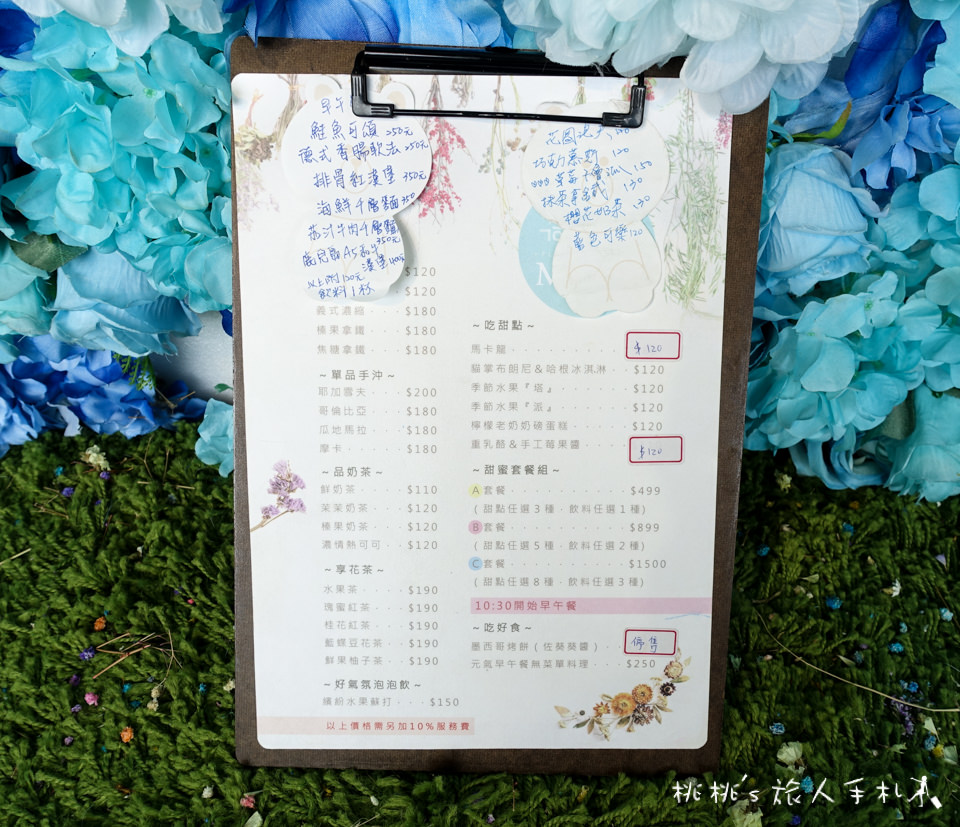 早午
鮭魚可頌 250元
德式香腸軟法 250元
排骨紅漢堡 350元
海鮮千層麵 350
茄汁牛肉千層麵
350元
鹿兒島A5和牛
漢堡
以上附
飲料1杯
$120
$120
義式濃縮 · · · $180
榛果拿鐵 · · · $180
焦糖拿鐵 · · · $180
~單品手沖~
耶加雪夫 · · · $200
哥倫比亞 · · · $180
瓜地馬拉 · · · $180
摩卡 · · · · · $180
~品奶茶~
鮮奶茶 · · · · $110
茉茉奶茶 · · · $120
榛果奶茶 · · · $120
濃情熱可可 · · $120
~享花茶~
水果茶 · · · · $190
瑰蜜紅茶 · · · $190
桂花紅茶 · · · $190
藍蝶豆花茶 · · $190
鮮果柚子茶 · · $190
~好氣氛泡泡飲~
繽紛水果蘇打 · · · $150
以上價格需另加10%服務費
巧克慕斯 120
150
抹茶 130
櫻花奶茶 130
藍色可樂 120
~吃甜點~
馬卡龍 · · · · · · · · · · $120
貓掌布朗尼&哈根冰淇淋 · · $120
季節水果『塔』 · · · · · · $120
季節水果『派』 · · · · · · $120
檸檬老奶奶磅蛋糕 · · · · · $120
重乳酪&手工莓果醬 · · · · $120
~甜蜜套餐組~
A 套餐 · · · · · · · · · · $499
(甜點任選3種．飲料任選1種)
B 套餐 · · · · · · · · · · $899
(甜點任選5種．飲料任選2種)
C 套餐 · · · · · · · · · · $1500
(甜點任選8種．飲料任選3種)
10:30開始早午餐
~吃好食~
墨西哥烤餅(佐莎莎醬) · · 停售
元氣早午餐無菜單料理 · · · $250
桃桃's旅人手札